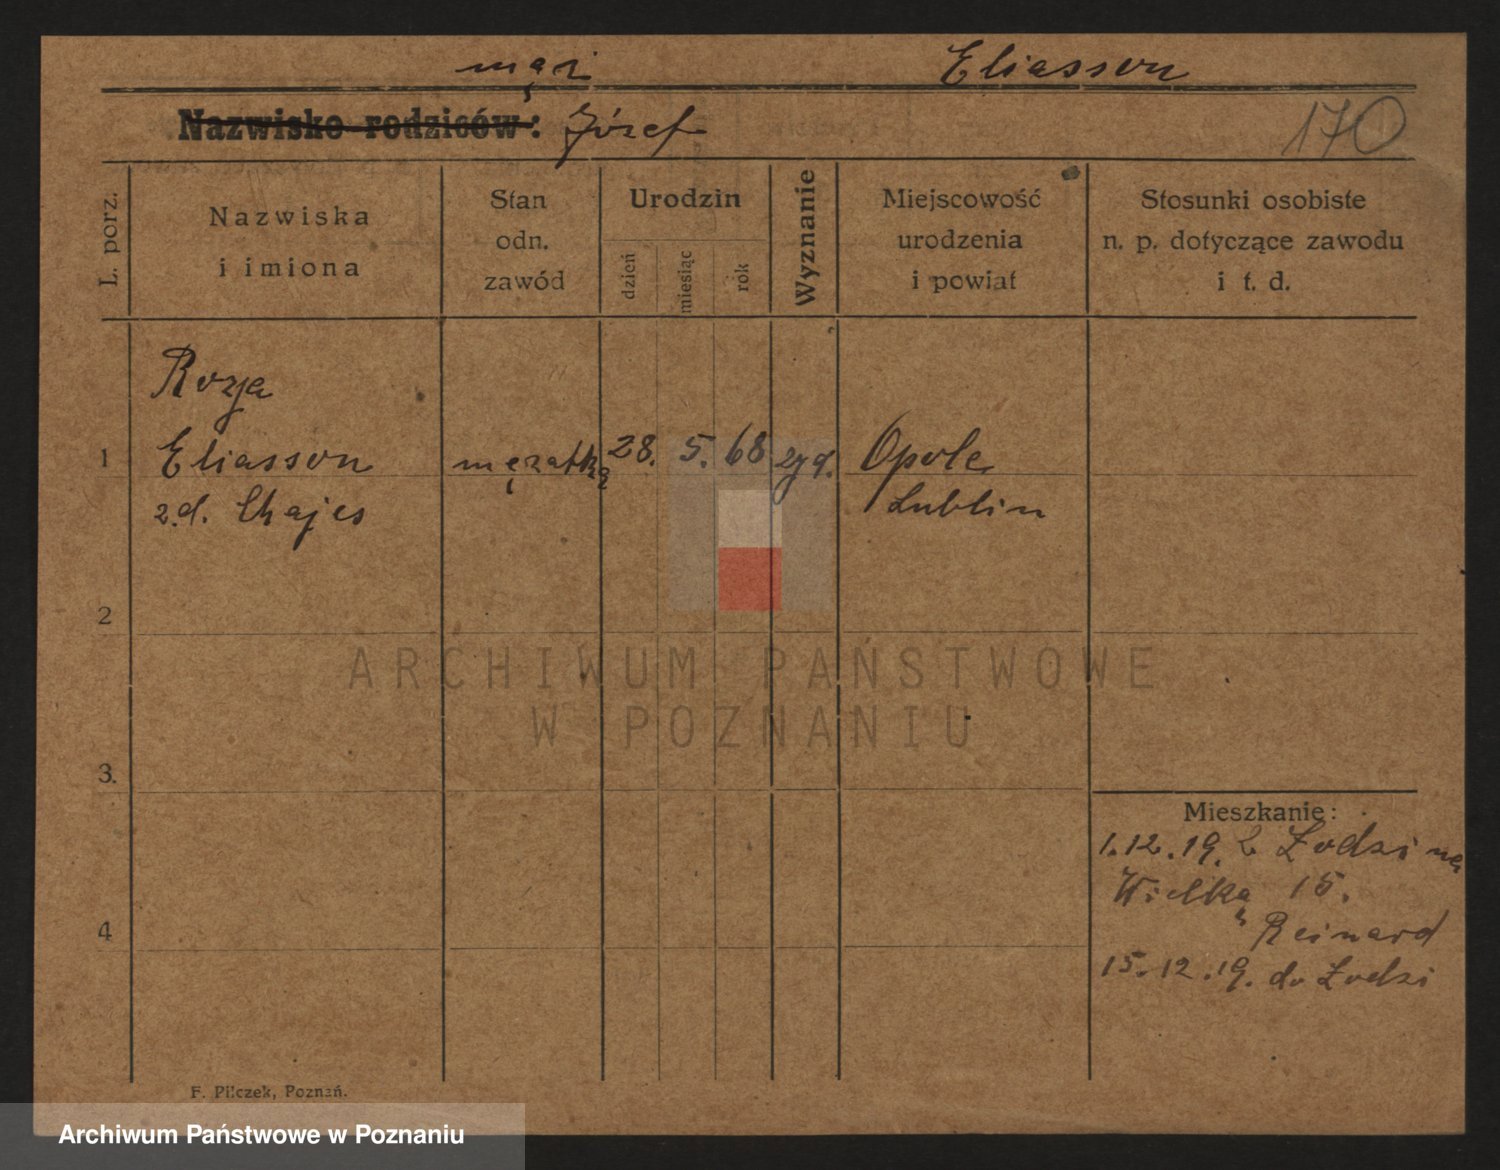 mąż Eliasson
Nazwisko rodziców: Józef 170
L. porz.
Nazwiska
i imiona
Stan
odn.
zawód
Urodzin
dzień
miesiąc
rok
Wyznanie
Miejscowość
urodzenia
i powiat
Stosunki osobiste
n. p. dotyczące zawodu
i t. d.
Rozja
1 Eliasson mężatką 28. 5. 68 żyd. Opole
z.d. Chajes Lublin
2
ARCHIWUM PAŃSTWOWE
W POZNANIU
3.
Mieszkanie:
1.12.19. z Łodzi na
Wielką 15.
4 Reinard
15.12.19. do Łodzi
F. Pilczek, Poznań.
Archiwum Państwowe w Poznaniu